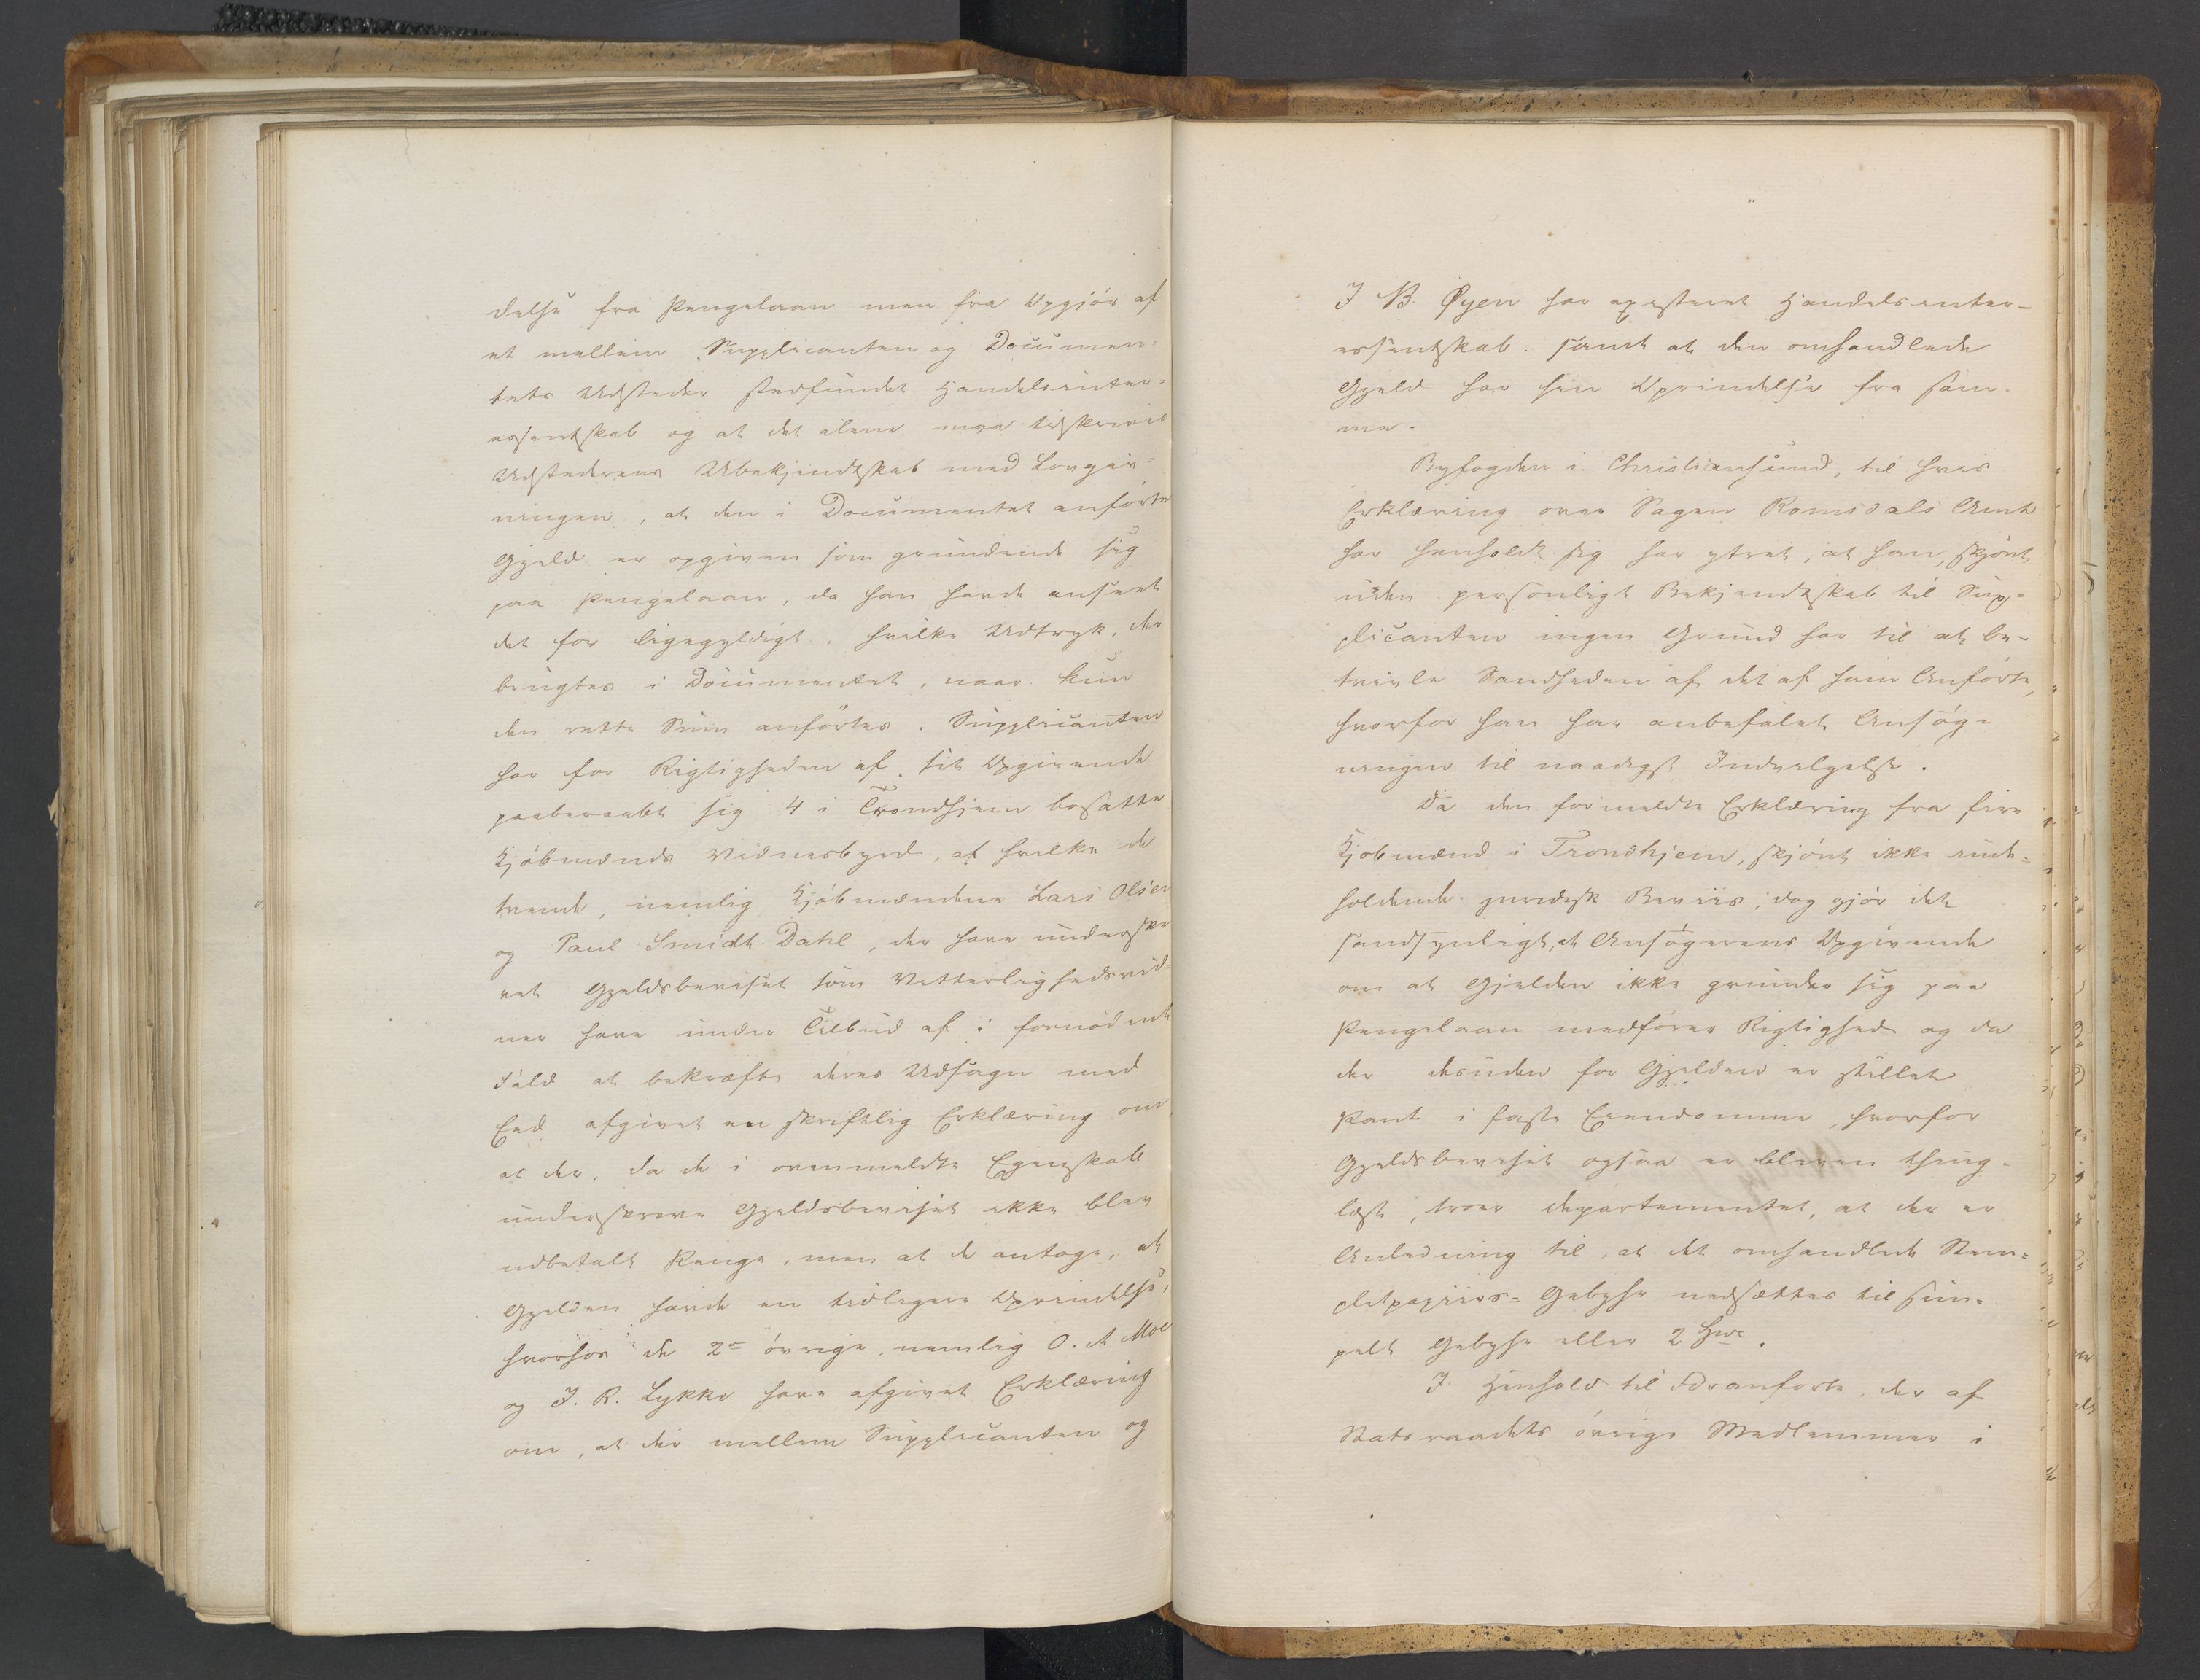 delse fra Pengelaan men fra Opgjør af
et mellem Supplicanten og Documen-
tets Udsteder stedfundet Handelsinter-
essentskab og at det alene maa tilskrives
Udstederens Ubekjendtskab med Lovgiv-
ningen, at den i Documentet anførte
Gjeld er opgiven som grundende sig
paa Pengelaan, da han havde anseet
det for ligegyldigt, hvilke Udtryk, der
brugtes i Documentet, naar kun
den rette Sum anførtes. Supplicanten
har for Rigtigheden af sit Opgivende
paaberaabt sig 4 i Trondhjem bosatte
Kjøbmænds Vidnesbyrd, af hvilke de
tvende, nemlig Kjøbmændene Lars Olsen
og Paul Smidt Dahl, der have underskre
vet Gjeldsbeviset som Vitterlighedsvid-
ner have under Tilbud af i fornødent
Fald at bekræfte deres Udsagn med
Eed afgivet en skriftlig Erklæring om
at der, da de i ovenmeldte Egenskab
underskreve Gjeldsbeviset ikke blev
udbetalt Penge, men at de antoge, at
Gjelden havde en tidligere Oprindelse,
hvorhos de 2de øvrige, nemlig O. A Moe
og J. R. Lykke have afgivet Erklæring
om, at der mellem Supplicanten og
J B. Øyen har existeret Handelsinter-
essentskab. samt at den omhandlede
Gjeld har sin Oprindelse fra sam-
me.
Byfogden i Christiansund, til hvis
Erklæring over Sagen Romsdals Amt
har henholdt sig har ytret, at han, skjønt
uden personligt Bekjendtskab til Sup-
plicanten ingen Grund har til at be-
tvivle Sandheden af det af ham Anførte,
hvorfor han har anbefalet Ansøg-
ningen til naadigst Indvilgelse.
Da den formeldte Erklæring fra fire
Kjøbmænd i Trondhjem, skjønt ikke inde-
holdende juridisk Beviis, dog gjør det
sandsynligt, at Ansøgerens Opgivende
om at Gjelden ikke grunder sig paa
Pengelaan medfører Rigtighed og da
der desuden for Gjelden er stillet
Pant i faste Eiendomme, hvorfor
Gjeldsbeviset ogsaa er bleven thing-
læst, troer departementet, at der er
Anledning til, at det omhandlede Stem-
pletpapiirs-Gebyhr nedsættes til sim-
pelt Gebyhr eller 2
I Henhold til Foranførte, der af
Statsraadets øvrige Medlemmer i